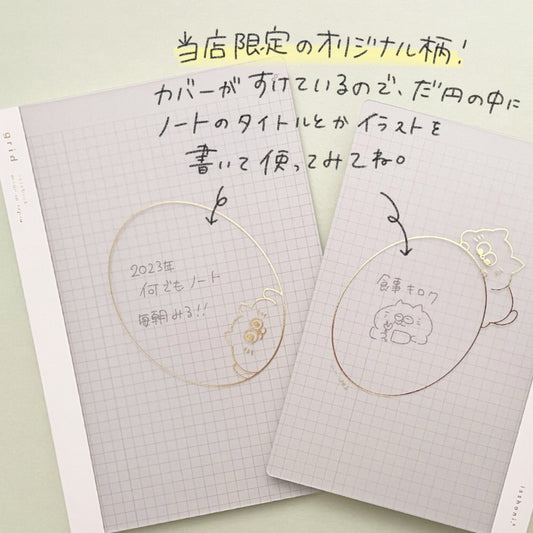 当店限定のオリジナル柄!
カバーがすけているので、だ円の中に
ノートのタイトルとかイラストを
書いて使ってみてね。
grid
2023年
何でもノート
毎朝みる!!
食事キロク